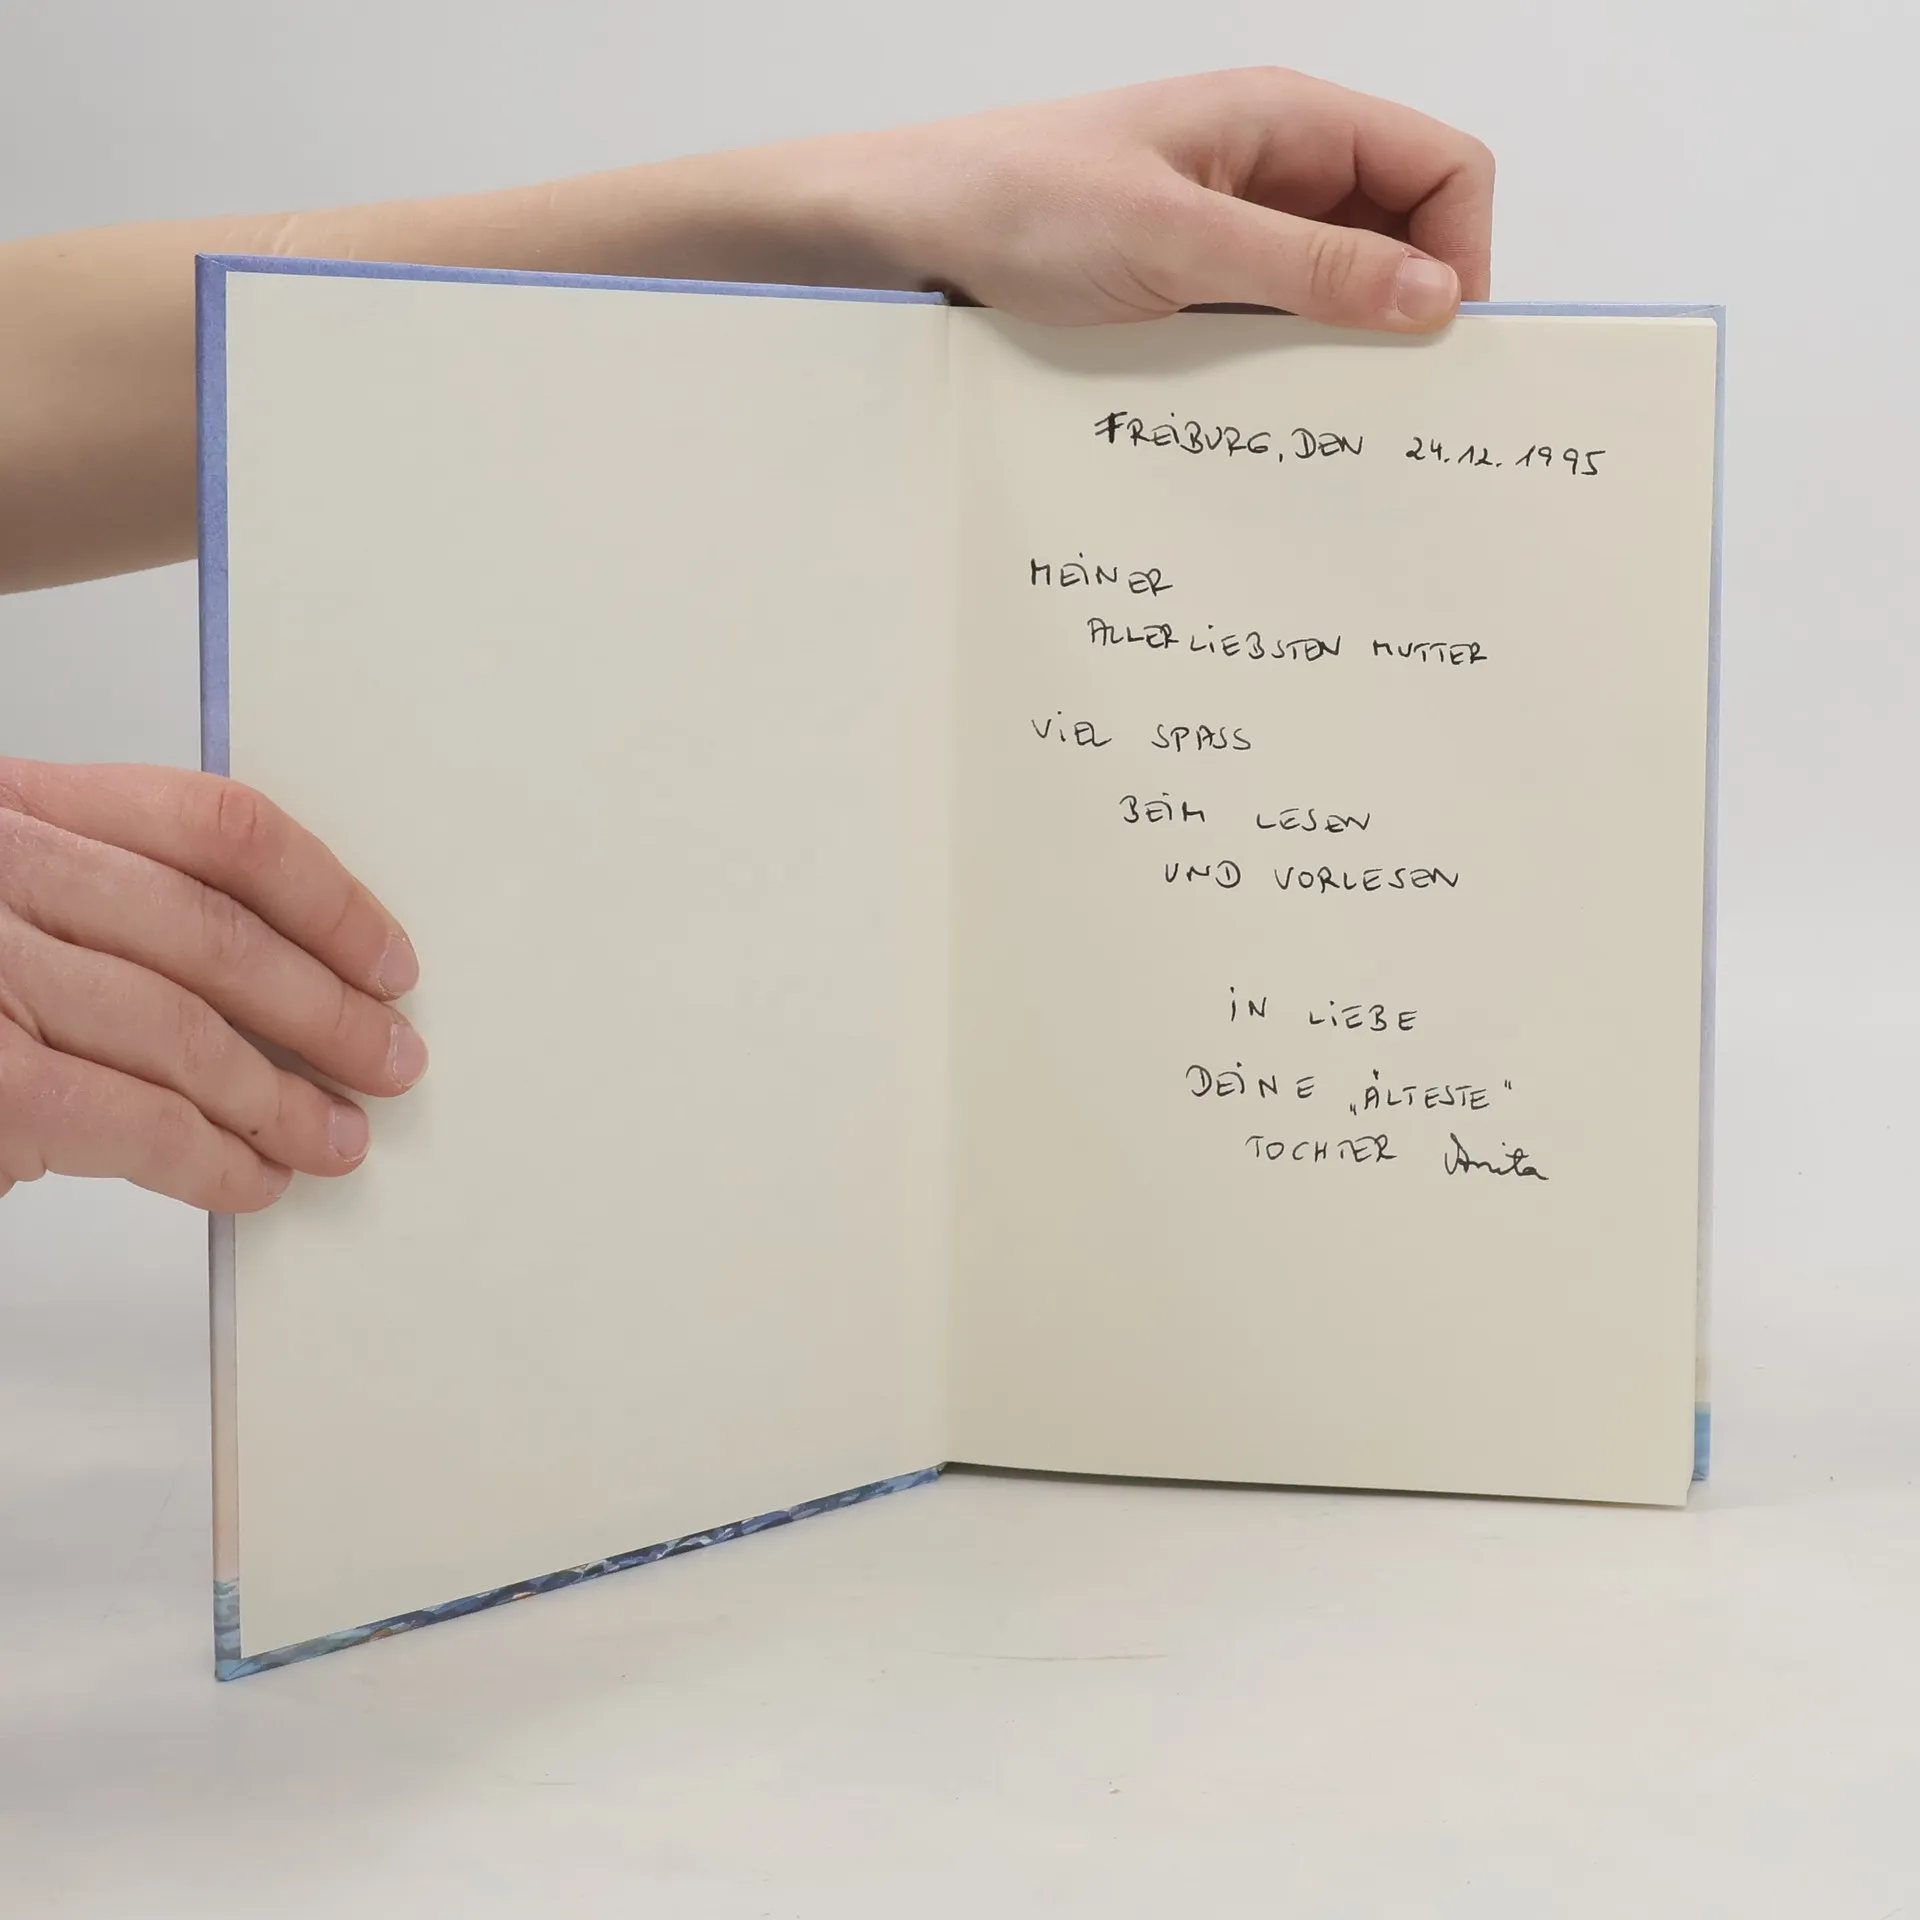 FREiBURG, DEN 24.12.1995
MEiNER
ALLERLiEBSTEN MUTTER
ViEL SPASS
BEiM LESEN
UND VORLESEN
iN LiEBE
DEiNE „ÄLTESTE"
TOCHTER Anita